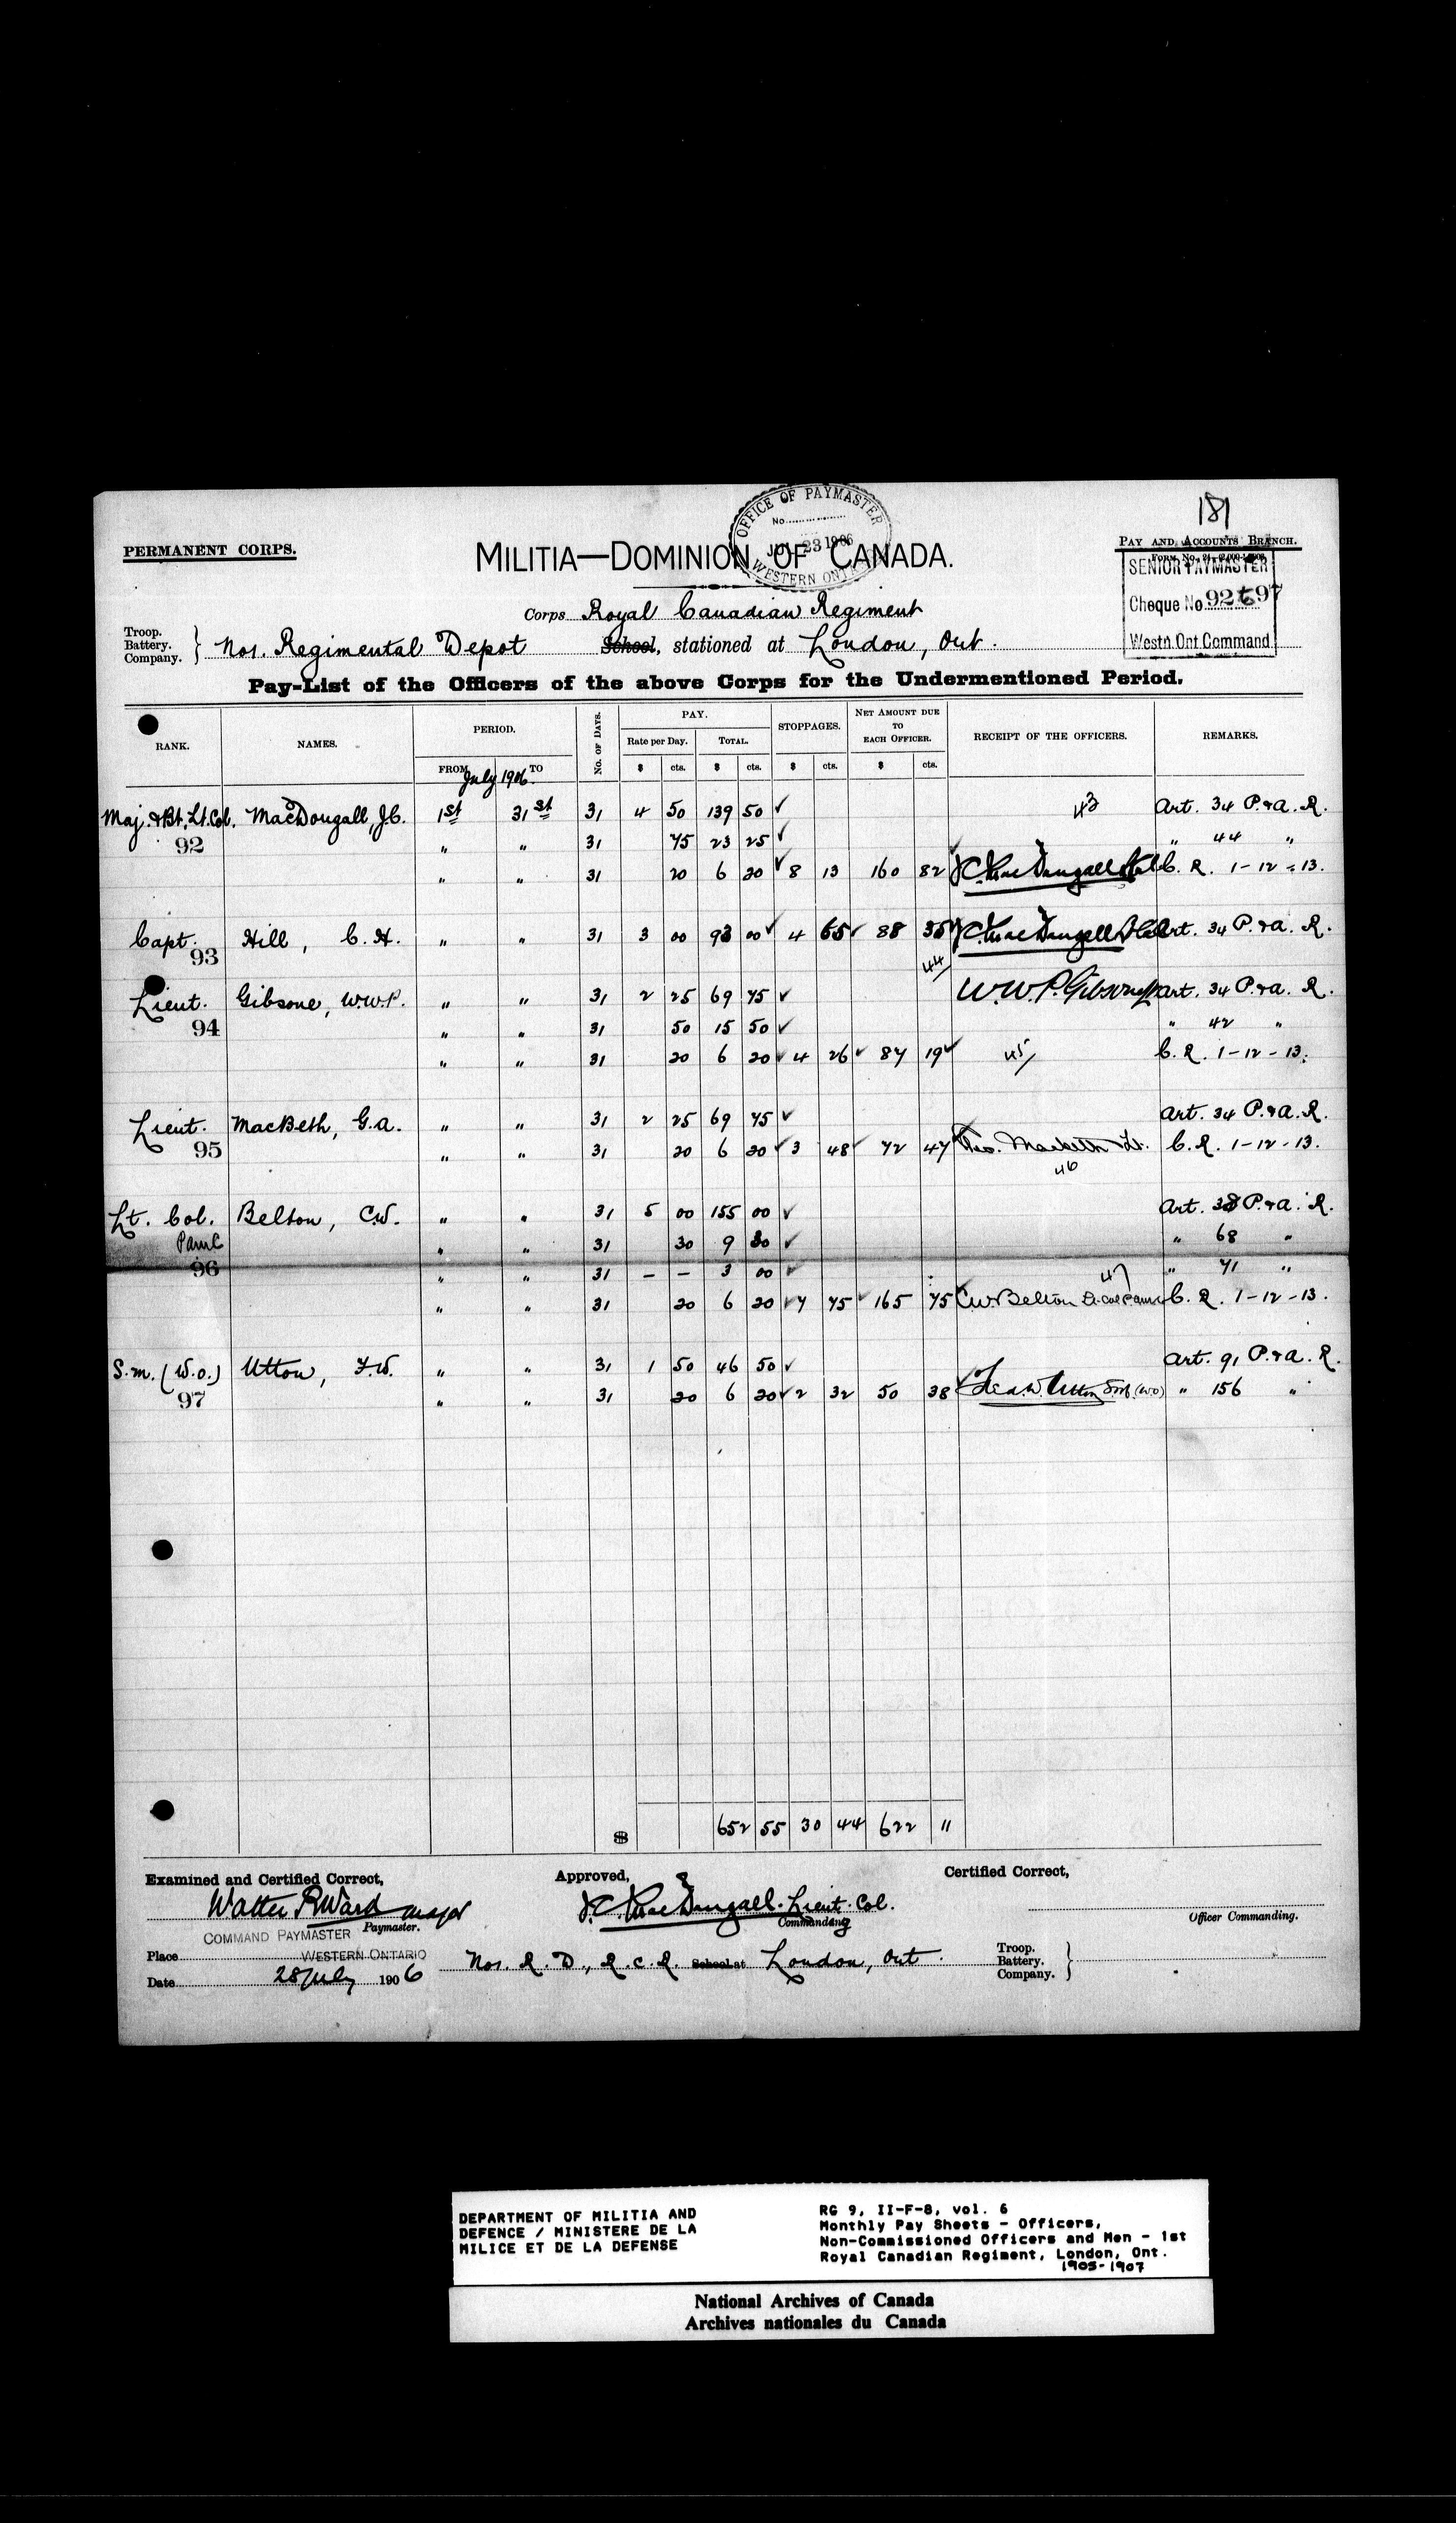 181
OFFICE OF PAYMASTER
No.
JUL 23 1906
WESTERN ONT
PERMANENT CORPS.
MILITIA—DOMINION OF CANADA.
PAY AND ACCOUNTS BRANCH.
SENIOR PAYMASTER
Cheque No 92 to 97
Westn Ont Command
Corps Royal Canadian Regiment
Troop. Battery. Company. } No1. Regimental Depot School, stationed at London, Ont.
Pay-List of the Officers of the above Corps for the Undermentioned Period.
RANK. NAMES. PERIOD. No. OF DAYS. PAY. STOPPAGES. NET AMOUNT DUE TO EACH OFFICER. RECEIPT OF THE OFFICERS. REMARKS.
FROM TO Rate per Day. TOTAL.
July 1906.
$ cts. $ cts. $ cts. $ cts.
Maj. & Bt. Lt. Col. MacDougall, J.C. 1st 31st 31 4 50 139 50 ✓ 43 Art. 34 P.&A. R.
92 " " 31 75 23 25 ✓ " 44 "
" " 31 20 6 20 ✓ 8 13 160 82 J.C. MacDougall Lt Col C. R. 1-12-13.
Capt. Hill, C. H. " " 31 3 00 93 00 ✓ 4 65 ✓ 88 35 J.C. MacDougall Lt Col Art. 34 P.&A. R.
93 44
Lieut. Gibsone, W.W.P. " " 31 2 25 69 75 ✓ W.W.P. Gibsone Art. 34 P.&A. R.
94 " " 31 50 15 50 ✓ " 42 "
" " 31 20 6 20 ✓ 4 26 ✓ 87 19 ✓ 45 C. R. 1-12-13.
Lieut. MacBeth, G.A. " " 31 2 25 69 75 ✓ Art. 34 P.&A. R.
95 " " 31 20 6 20 ✓ 3 48 ✓ 72 47 Geo. Macbeth Lt. C. R. 1-12-13.
46
Lt. Col. Belton, C.W. " " 31 5 00 155 00 ✓ Art. 38 P.&A. R.
PAMC " " 31 30 9 30 ✓ " 68 "
96 " " 31 – – 3 00 ✓ 47 " 71 "
" " 31 20 6 20 ✓ 7 75 ✓ 165 75 C.W. Belton Lt. Col PAMC C. R. 1-12-13.
S.M. (W.O.) Utton, F.W. " " 31 1 50 46 50 ✓ Art. 91 P.&A. R.
97 " " 31 20 6 20 ✓ 2 32 50 38 ✓ Fred.W. Utton S.M. (WO) " 156 "
$ 652 55 30 44 622 11
Examined and Certified Correct, Approved, Certified Correct,
Walter R Ward Major J.C. MacDougall. Lieut. Col.
Paymaster. Commanding Officer Commanding.
COMMAND PAYMASTER
Place WESTERN ONTARIO No1. R. D., R. C. R. School at London, Ont. Troop. Battery. Company. }
Date 28 July 1906
DEPARTMENT OF MILITIA AND
DEFENCE / MINISTERE DE LA
MILICE ET DE LA DEFENSE
RG 9, II-F-8, vol. 6
Monthly Pay Sheets - Officers,
Non-Commissioned Officers and Men - 1st
Royal Canadian Regiment, London, Ont.
1905-1907
National Archives of Canada
Archives nationales du Canada